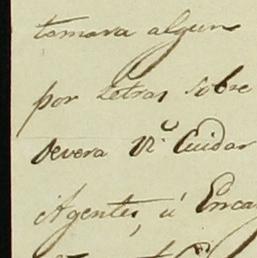 tomara algun
por Letras sobre
devera Vᵉ. Cuidar
Agentes, ú Enca